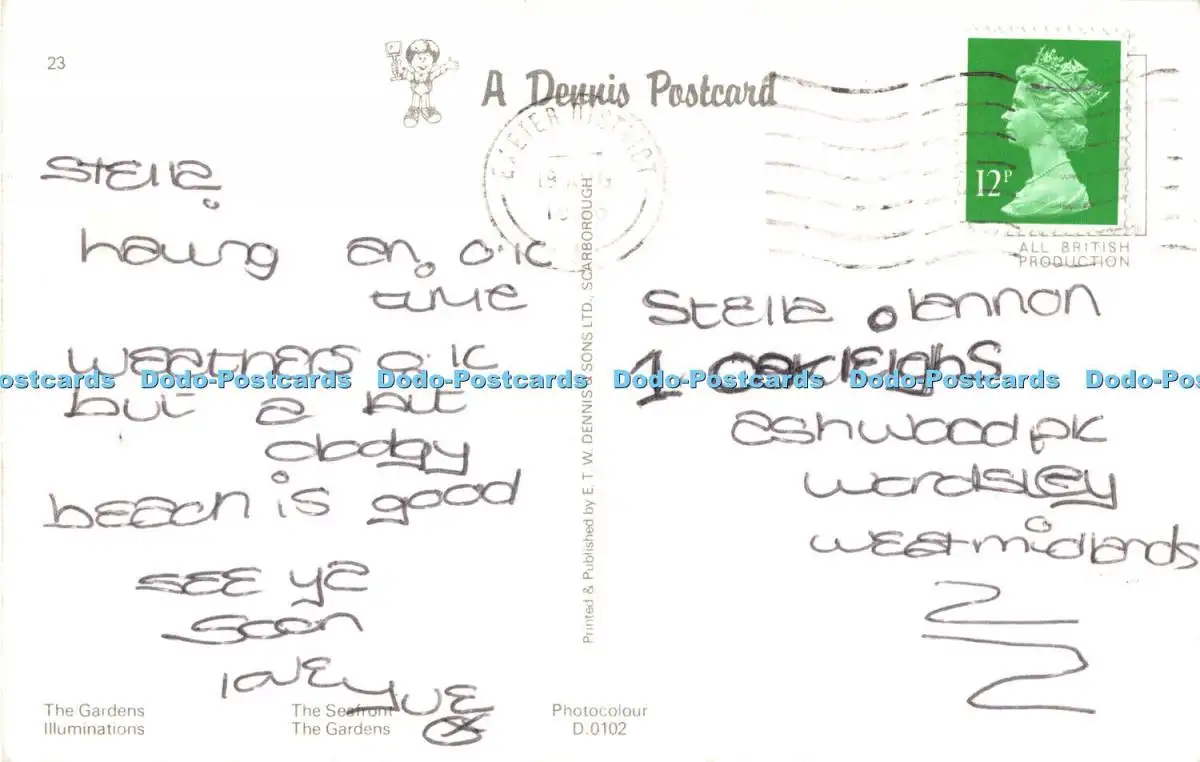 23
A Dennis Postcard
EXETER DISTRICT
12P
ALL BRITISH
PRODUCTION
Stella
having an o.k
time
weathers o.k
but a bit
dodgy
beach is good
see ya
soon
love
Stella
1 oakleighs
ashwood pk
wordsley
westmidlands
Printed & Published by E. T. W. DENNIS & SONS LTD., SCARBOROUGH
Dodo-Postcards Dodo-Postcards Dodo-Postcards Dodo-Postcards Dodo-Postcards
The Gardens
Illuminations
The Seafront
The Gardens
Photocolour
D.0102